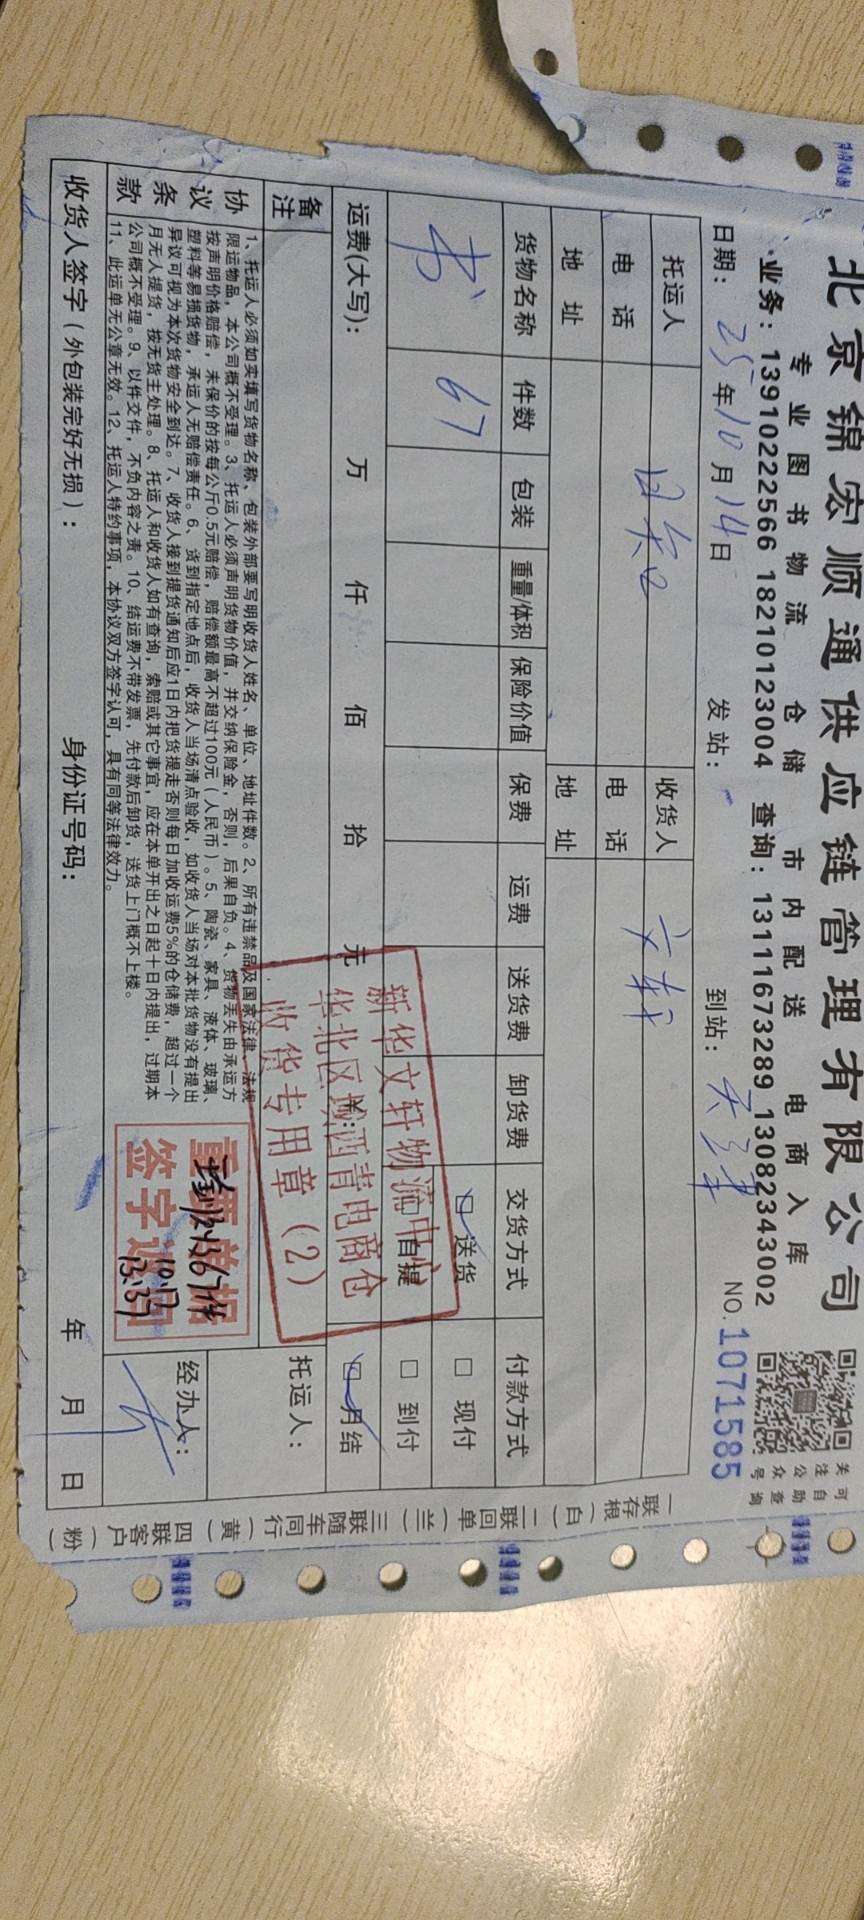 北京锦宏顺通供应链管理有限公司
专业图书物流 仓储 市内配送 电商入库
业务：13910222566 18210123004 查询：13111673289 13082343002
关注公众号
可自助查询
日期：25年10月14日 发站： 到站：天津 NO.1071585
托运人 收货人 文轩
电话 电话
地址 地址
货物名称 件数 包装 重量/体积 保险价值 保费 运费 送货费 卸货费 交货方式 付款方式
书 67 送货 现付
自提 到付
运费(大写)： 万 仟 佰 拾 元 ¥： 月结
备注
托运人：
经办人：
协议条款
1、托运人必须如实填写货物名称、包装外部要写明收货人姓名、单位、地址件数。2、所有违禁品及国家法律、法规
限运物品，本公司概不受理。3、托运人必须声明货物价值，并交纳保险金，否则，后果自负。4、货物丢失由承运方
按声明价格赔偿，未保价的按每公斤0.5元赔偿，赔偿额最高不超过100元（人民币）。5、陶瓷、家具、液体、玻璃、
塑料等易损货物，承运人无赔偿责任。6、货到指定地点后，收货人当场清点验收，如收货人当场对本批货物没有提出
异议可视为本次货物安全到达。7、收货人接到提货通知后应1日内把货提走否则每日加收运费5%的仓储费，超过一个
月无人提货，按无货主处理。8、托运人和收货人如有查询，索赔或其它事宜，应在本单开出之日起十日内提出，过期本
公司概不受理。9、以件交件，不负内容之责。10、结运费不带发票，先付款后卸货，送货上门概不上楼。
11、此运单无公章无效。12、托运人特约事项，本协议双方签字认可，具有同等法律效力。
收货人签字（外包装完好无损）： 身份证号码： 年 月 日
新华文轩物流中心
华北区域西青电商仓
收货专用章（2）
重要单据
签字返回
67件
13:37
一联存根（白） 二联回单（兰） 三联随车同行（黄） 四联客户（粉）